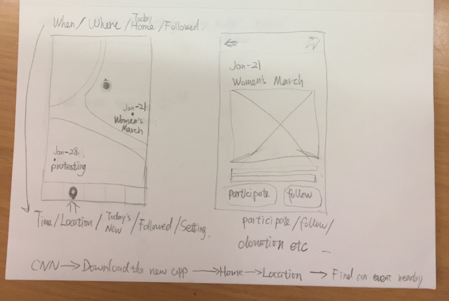 When / Where / Today Home / Followed
Jan-21
Women's
March
Jan-28
protesting
Time / Location / Today's New / Followed / Setting
Jan-21
Women's March
participate
follow
participate / follow /
donation etc
CNN → Download the new app → Home → Location → Find an event nearby